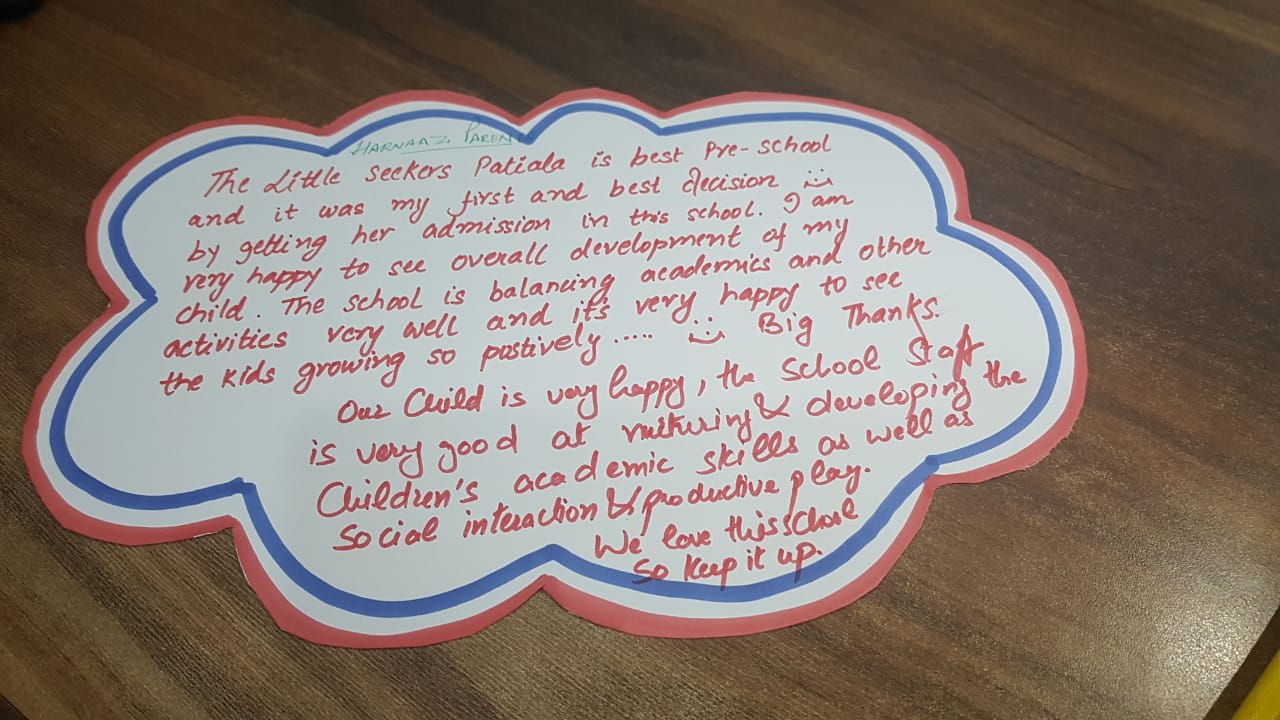 HARNAAZ PARENT
The Little seekers Patiala is best Pre-school
and it was my first and best decision
by getting her admission in this school. I am
very happy to see overall development of my
child. The school is balancing academics and other
activities very well and it's very happy to see
the kids growing so postively ..... Big Thanks.
Our Child is very happy, the School Staff
is very good at nurturing & developing the
Children's academic skills as well as
Social interaction & productive play.
We love this school
So Keep it up.